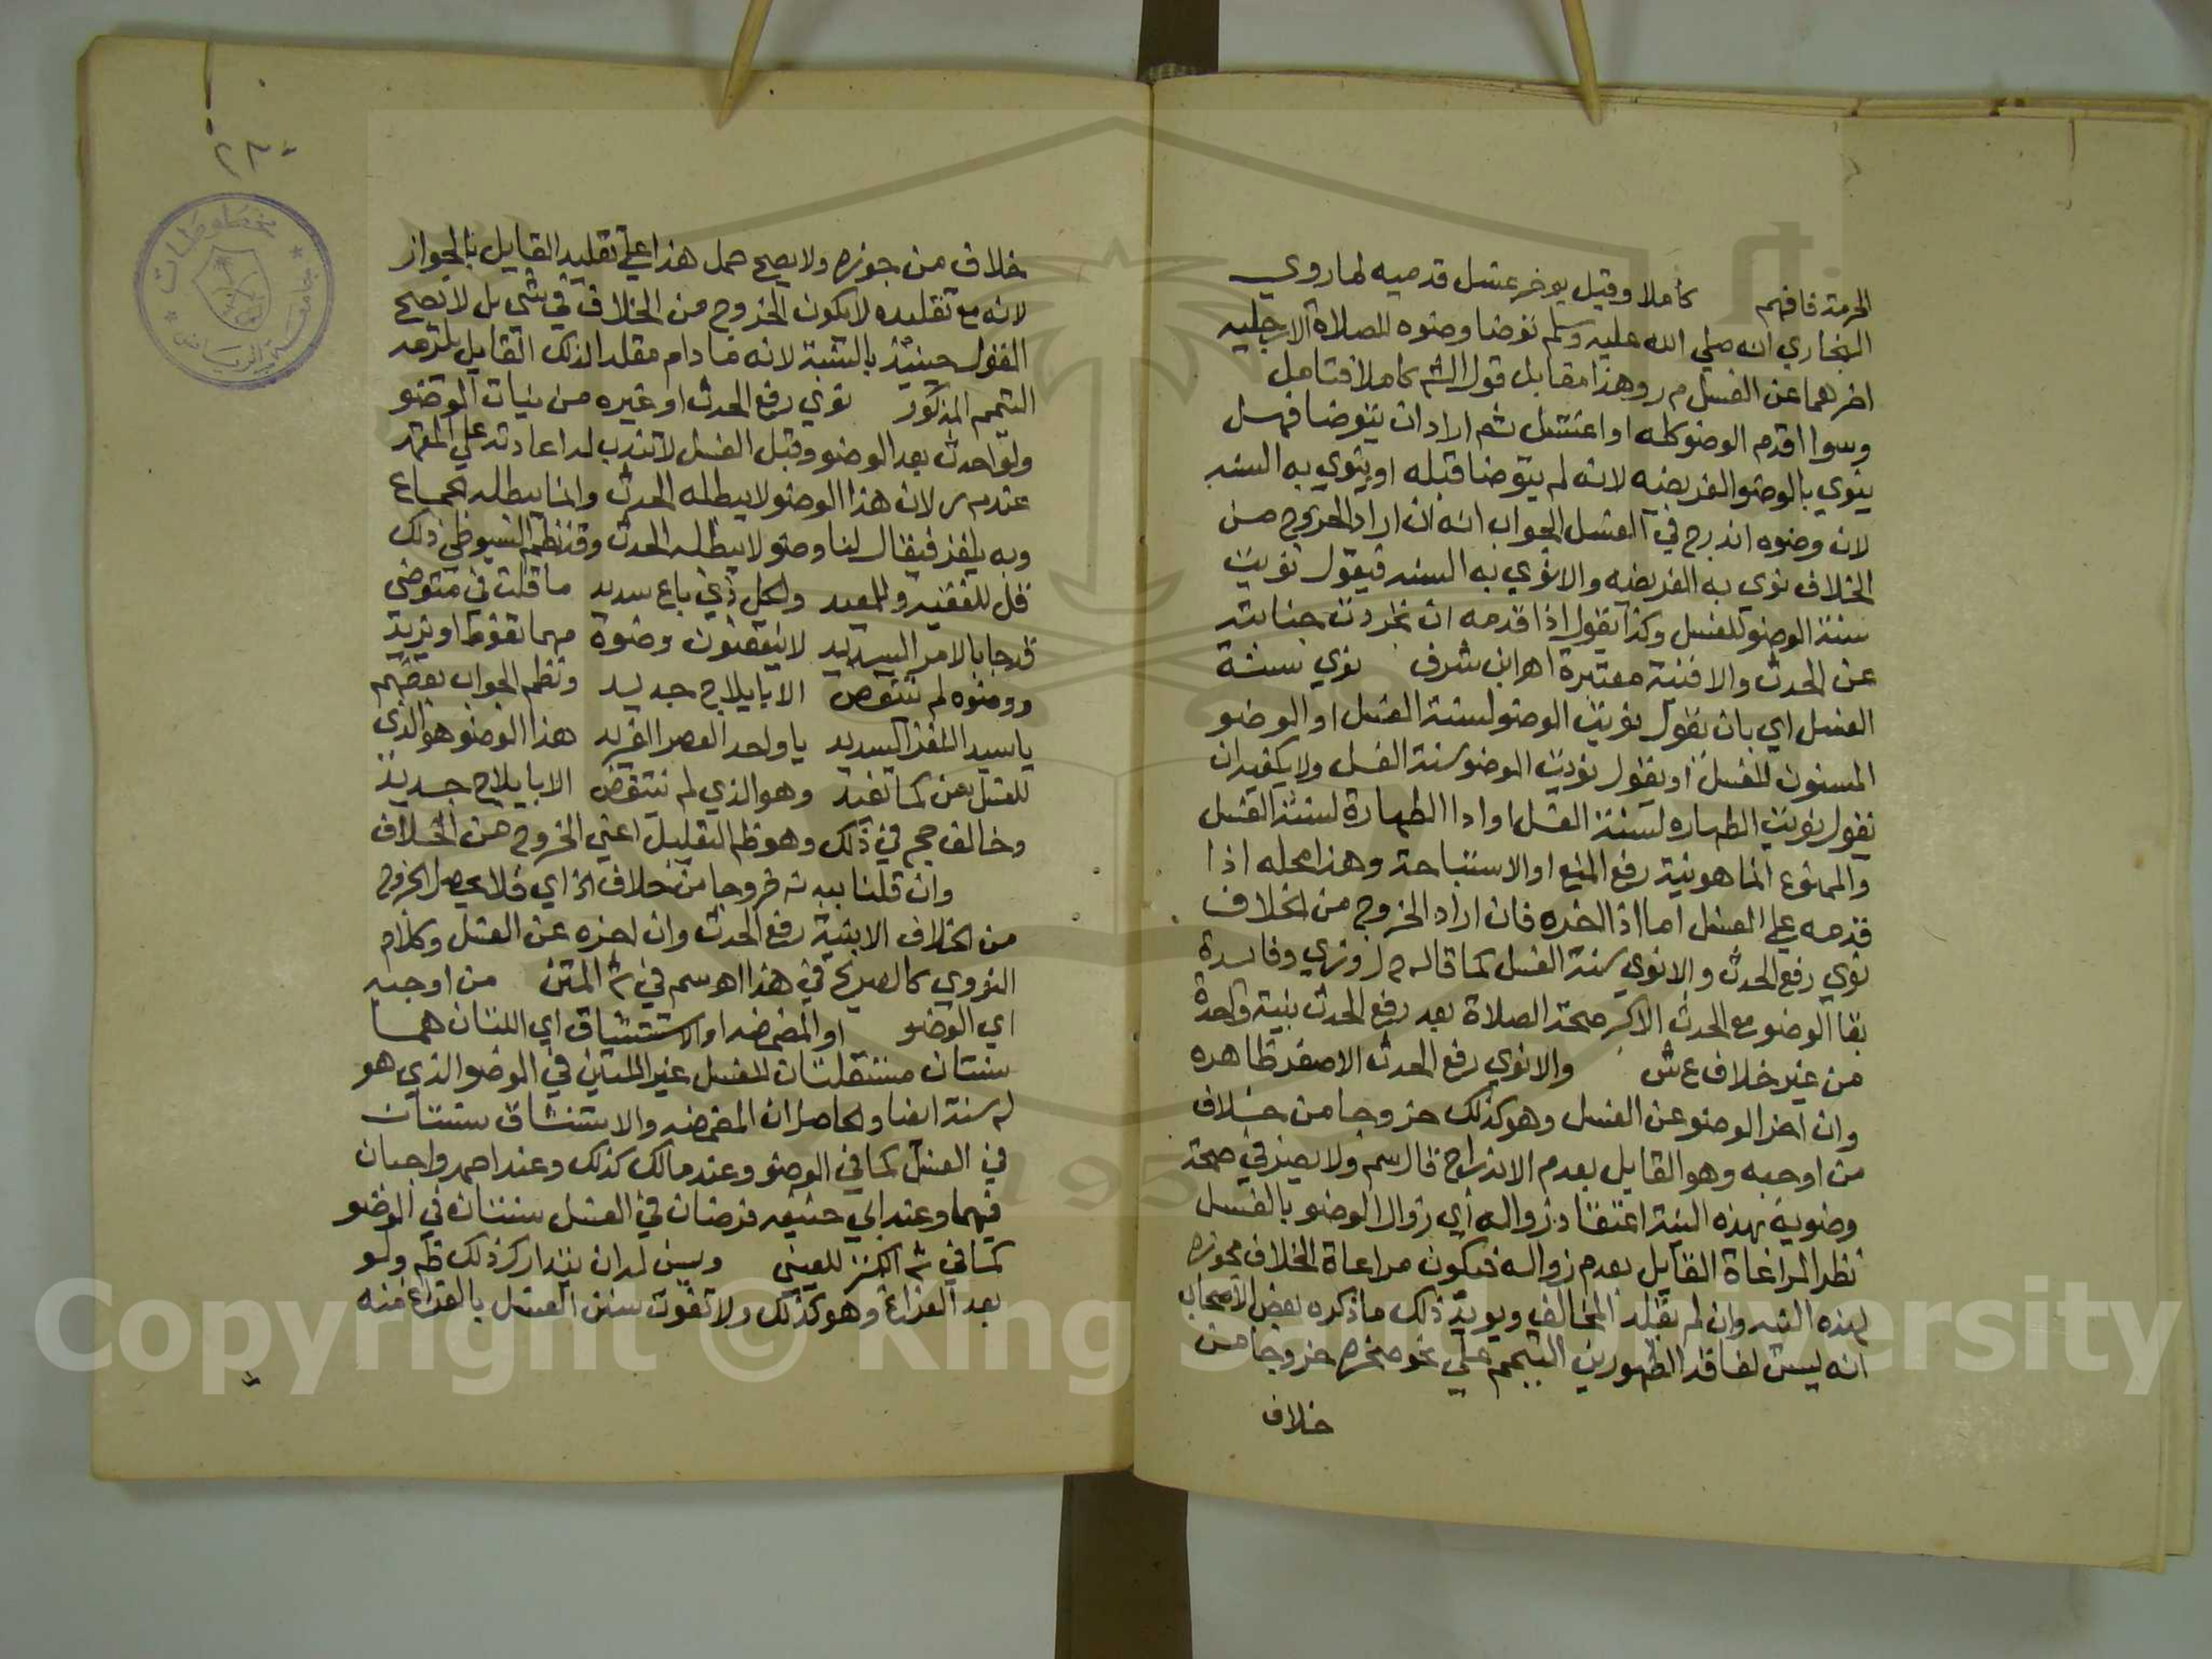 الحرمة فافهم كاملا وقيل يوخر غسل قدميه لما روي
البخاري انه صلي الله عليه وسلم توضا وضوه للصلاة الارجليه
اخرهما عن الغسل م ر وهذا مقابل قول الشم كاملا فتامل
وسوا اقدم الوضو كله او اغتسل ثم اراد ان يتوضا فهل
ينوي بالوضو الفريضه لانه لم يتوضا قبله او ينوي به السنه
لان وضوه اندرج في الغسل الجواب انه ان اراد الخروج من
الخلاف نوي به الفريضه والا نوي به السنه فيقول نويت
سنة الوضو للغسل وكذا يقول اذا قدمه ان تجردت جنابته
عن الحدث والا فنية معتبرة اهر ابن شرف نوي سنة
الغسل اي بان تقول نويت الوضو لسنة الغسل او الوضو
المسنون للغسل او يقول نويت الوضو سنة الغسل ولا يكفي ان
تقول نويت الطهاره لسنة الغسل او ادا الطهارة لسنة الغسل
والممنوع انما هو نية رفع المنع او الاستباحة وهذا محله اذا
قدمه علي الغسل اما اذا اخره فان اراد الخروج من الخلاف
نوي رفع الحدث والا نوي سنة الغسل كما قاله م ر وفايدة
بقا الوضو مع الحدث الاكبر صحة الصلاة بعد رفع الحدث بنية واحدة
من غير خلاف ع ش والا نوي رفع الحدث الاصغر ظاهره
وان اخر الوضو عن الغسل وهو كذلك خروجا من خلاف
من اوجبه وهو القايل بعدم الاندراج قال سم ولا يضر في صحة
وضويه بهذه النية اعتقاد زواله اي زوال الوضو بالغسل
نظرا لمراعاة القايل بعدم زواله فيكون مراعاة الخلاف مجوزه
لهذه النيه وان لم نقلد المخالف ويويد ذلك ما ذكره بعض الاصحاب
انه يسن لفاقد الطهورين التيمم علي نحو صخره خروجا من
خلاف
خلاف من جوزه ولا يصح حمل هذا علي تقليد القايل بالجواز
لانه مع تقليده لا يكون الخروج من الخلاف في شي بل لا يصح
القول حينئذ بالسنية لانه ما دام مقلدا لذلك القايل يلزمه
التيمم المذكور نوي رفع الحدث او غيره من نيات الوضو
ولو احدث بعد الوضو وقبل الغسل لا تندب له اعادته علي المعتمد
عند م ر لان هذا الوضو لا يبطله الحدث وانما يبطله جماع
وبه يلغز فيقال لنا وضو لا يبطله الحدث وقد نظم السيوطي ذلك
قل للفقيه وللمفيد ولكل ذي باع مديد ما قلت في متوضي
قد جا بالامر السديد لا ينقضون وضوه مهما تغوط او يزيد
ووضوه لم ينتقض الا بايلاج جديد ونظم الجواب بعضهم
يا سيد اللغز السديد يا واحد العصر الفريد هذا الوضو هو الذي
للغسل سن كما تفيد وهو الذي لم ينتقض الا بايلاج جديد
وخالف حج في ذلك وهو ظم التعليل اعني الخروج من الخلاف
وان قلنا يندبه خروجا من خلاف الخ اي فلا يحصل الخروج
من الخلاف الا بنية رفع الحدث وان اخره عن الغسل وكلام
النووي كالصريح في هذا اهر سم في ش المتن من اوجبه
اي الوضو او المضمضه او الاستنشاق اي اللتان هما
سنتان مستقلتان للغسل غير اللتين في الوضو الذي هو
له سنة ايضا والحاصل ان المضمضه والاستنشاق سنتان
في الغسل كما في الوضو وعند مالك كذلك وعند احمد واجبان
فيهما وعند ابي حنيفه فرضان في الغسل سنتان في الوضو
كما في ش الكنز للعيني ويسن له ان يتدارك ذلك ظم ولو
بعد الفراغ وهو كذلك ولا تفوت سنن الغسل بالفراغ منه
مخطوطات
جامعة الرياض
Copyright © King Saud University